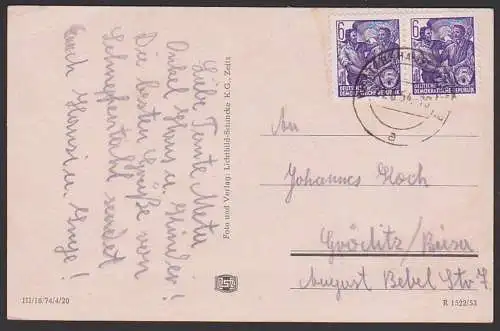 Liebe Tante Meta
Onkel Hans u Kinder!
Die besten Grüße von
Schnepfental sendet
Euch Hansi u. Inge!
Foto und Verlag: Lichtbild-Schincke K.G., Zeitz
6
DEUTSCHE
DEMOKRATISCHE REPUBLIK
6
DEUTSCHE
DEMOKRATISCHE REPUBLIK
a
An
Johannes
Gröditz/Riesa
August Bebel Str 7
III/18/74/4/20
R 1522/53